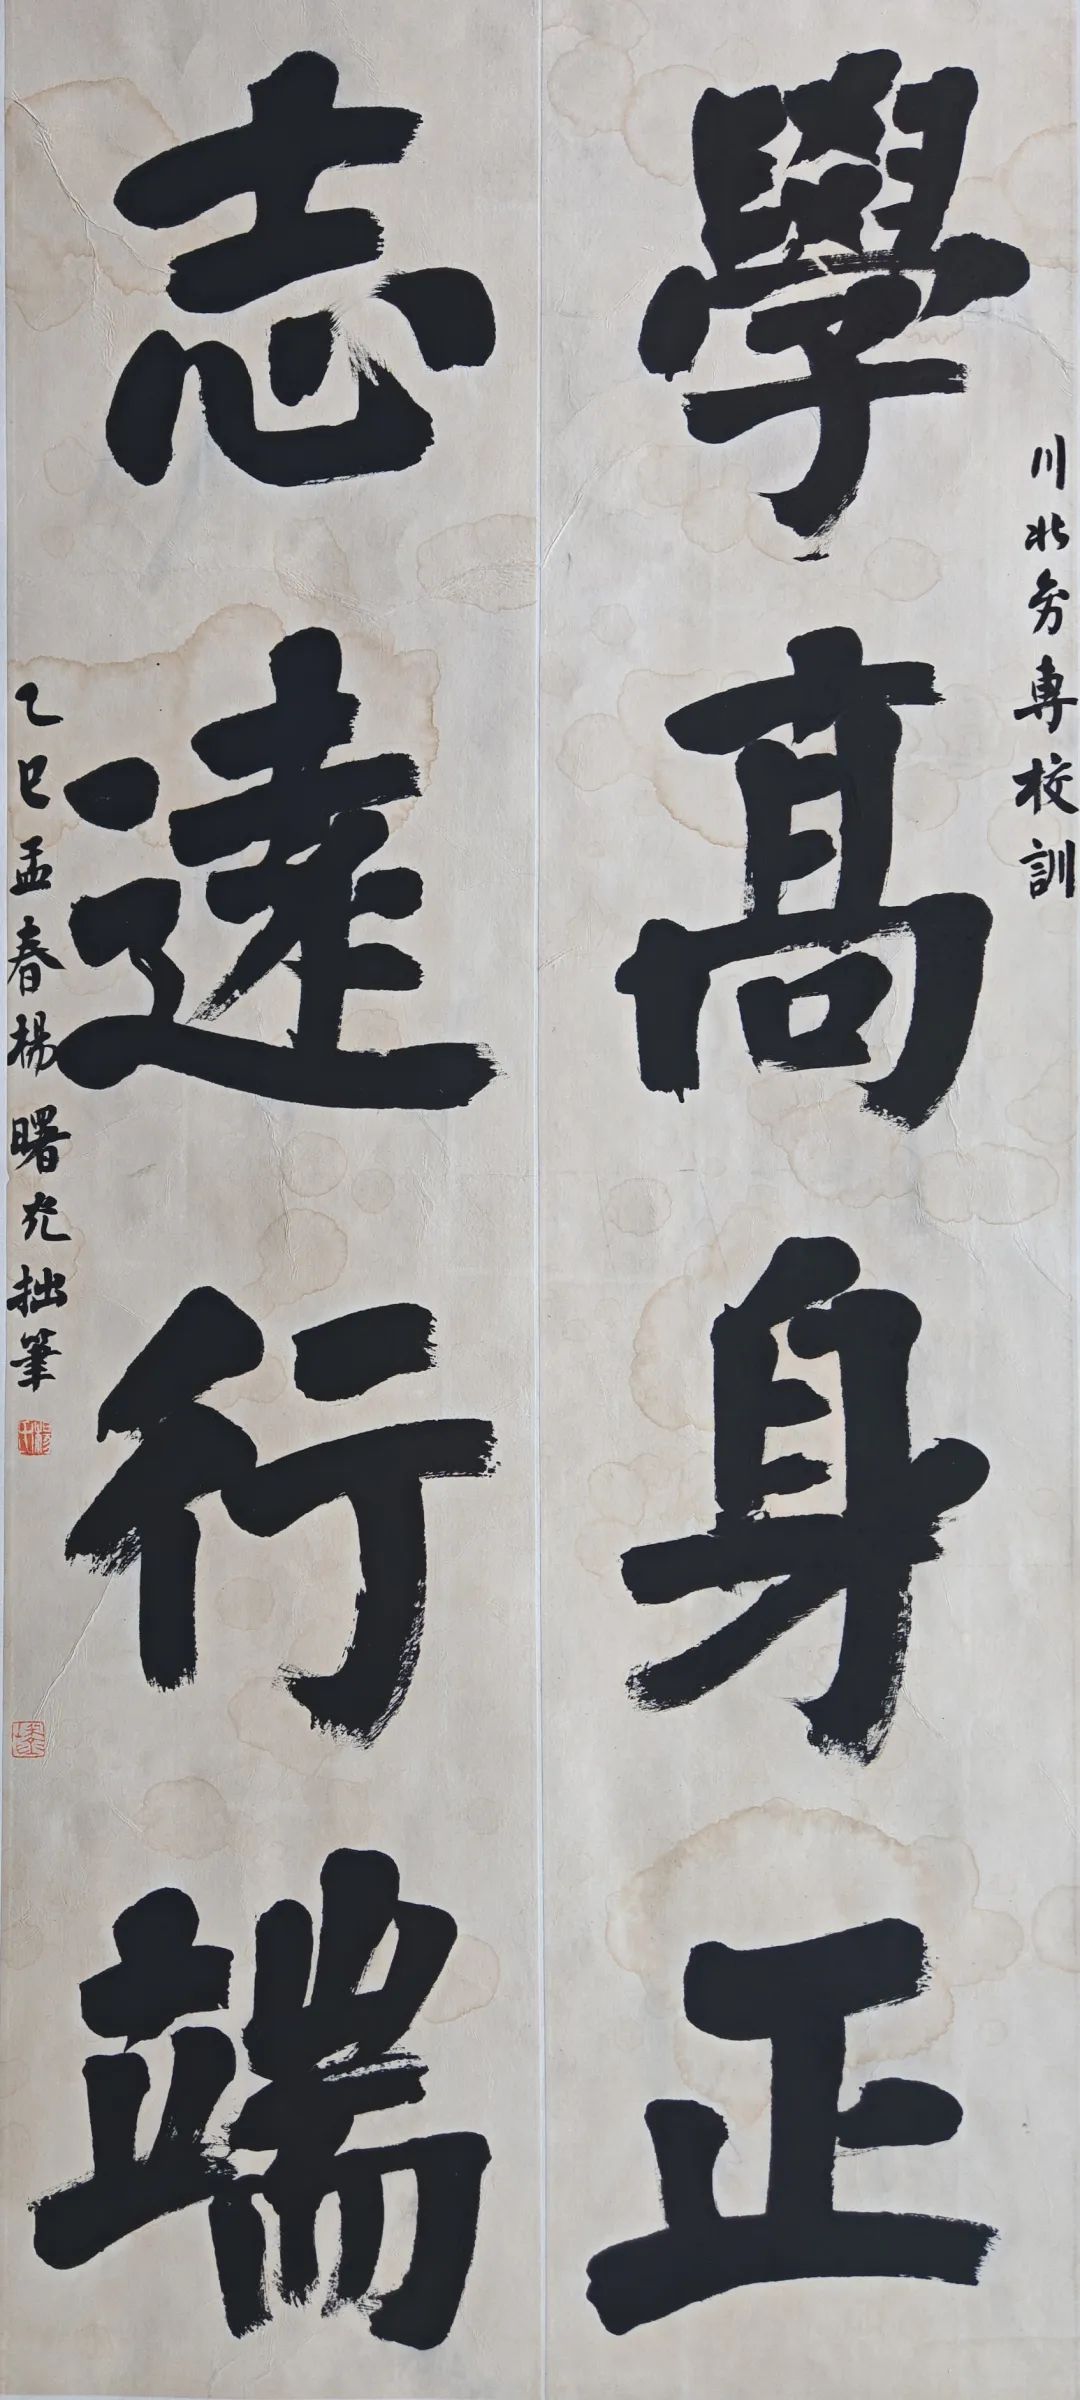 學高身正
川北幼專校訓
志遠行端
乙巳孟春楊曙光拙筆